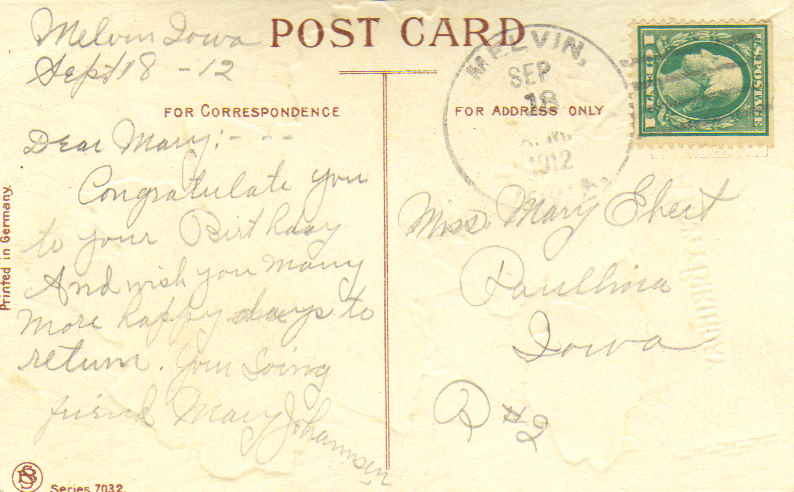 POST CARD
Melvin Iowa
Sept 18 - 12
FOR CORRESPONDENCE
Dear Mary:- - -
Congratulate you
to your Birthday
And wish you many
more happy days to
return. Your loving
friend Mary Johannsen
Printed in Germany.
Series 7032.
FOR ADDRESS ONLY
MELVIN,
SEP
18
1912
U.S. POSTAGE
Miss. Mary Ebert
Paullina
Iowa
R #2